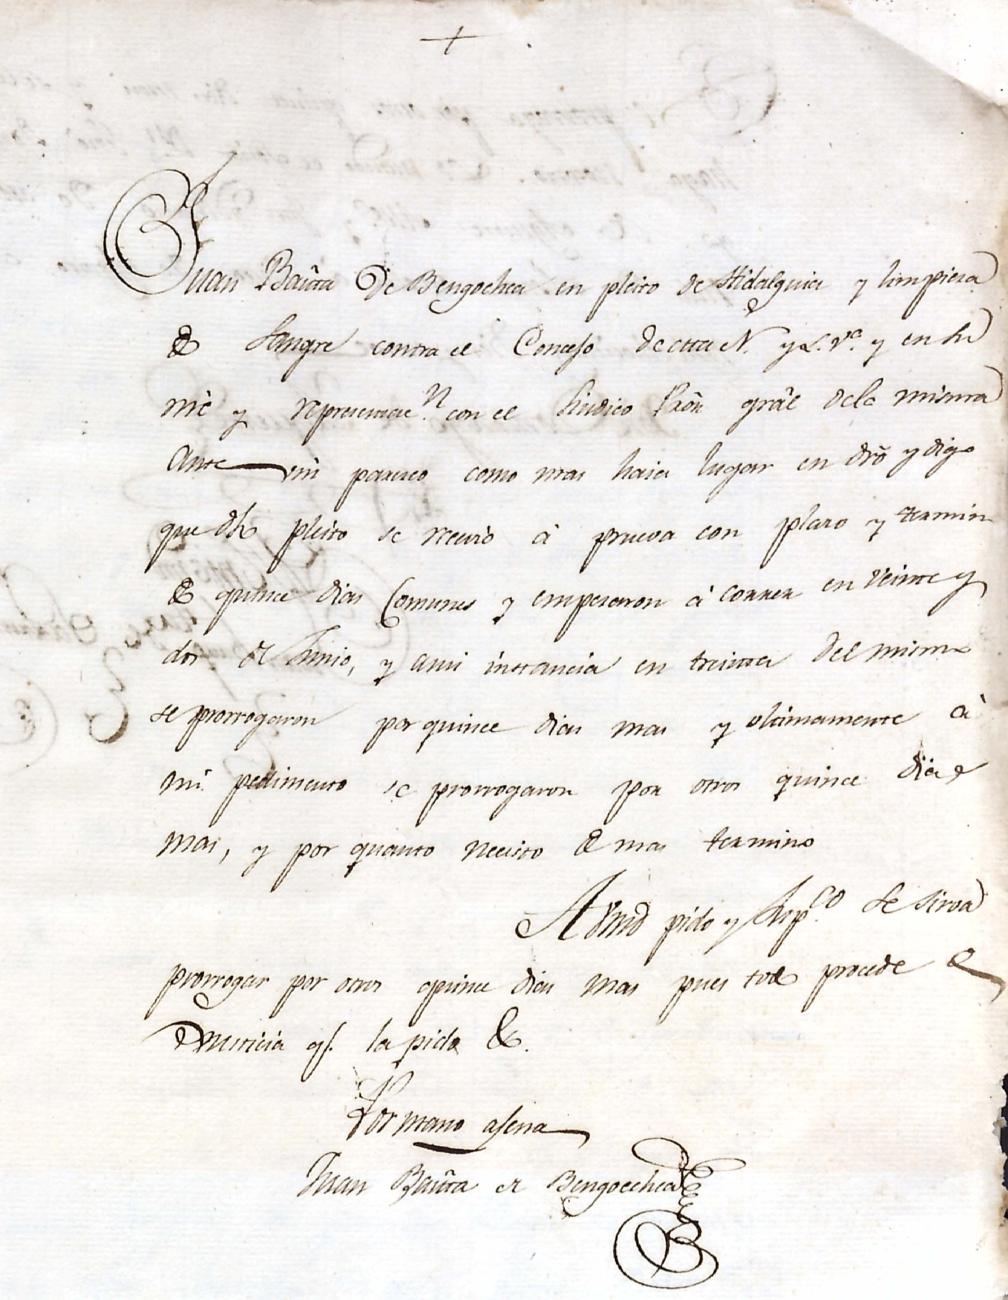 +
Juan Bauta de Bengochea en pleito de Hidalguia y limpieza
de Sangre contra el Concejo de esta N. y L. Va. y en su
nre y representacn. con el Sindico Prôr grâl dela misma
Ante vm parezco como mas haia lugar en drô y digo
que dho pleito se recivio à prueva con plazo y termino
de quince dias Comunes y empezaron à correr en veinte y
dos de Junio, y ami instancia en treinta del mismo
se prorrogaron por quince dias mas y ultimamente à
mi pedimento se prorrogaron por otros quince dias
mas, y por quanto necesito de mas termino
A Vmd pido y supco. se sirva
prorrogar por otros quince dias mas pues todo procede de
Justicia q. la pido &.
Por mano agena
Juan Bauta de Bengoechea